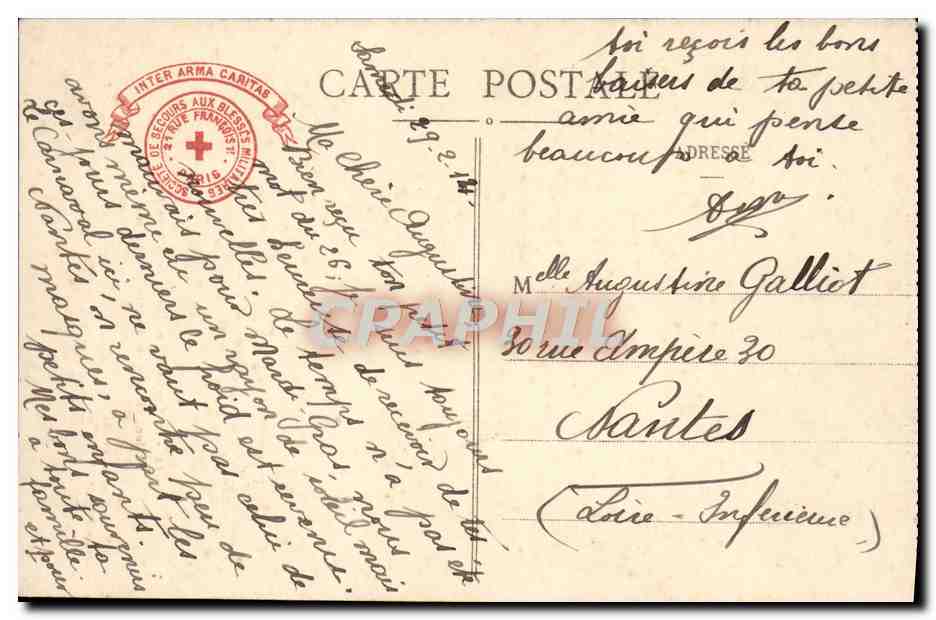 INTER ARMA CARITAS
SOCIÉTÉ DE SECOURS AUX BLESSÉS MILITAIRES
21 RUE FRANÇOIS 1er
PARIS
CARTE POSTALE
ADRESSE
Samedi 29-2-14.
Ma Chère Augustine
Bien reçu ton petit
mot du 26. Je suis toujours
très heureuse de recevoir de tes
nouvelles. Le temps n'a pas été
mauvais pour Mardi-Gras, nous
avons même eu un rayon de soleil mais
ces jours derniers le froid est revenu.
Le Carnaval ici, ne vaut pas celui de
Nantes, on rencontre peu de
masques, à part les
petits enfants.
Mes bons souvenirs
à toute ta
famille
et pour
toi reçois les bons
baisers de ta petite
amie qui pense
beaucoup à toi.
Melle Augustine Galliot
30 rue Ampère 30
Nantes
(Loire-Inférieure)
CPAPHIL